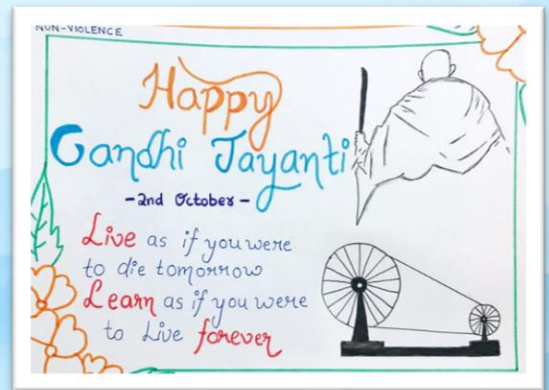 NON-VIOLENCE
Happy
Gandhi Jayanti
-2nd October-
Live as if you were
to die tomorrow
Learn as if you were
to Live forever